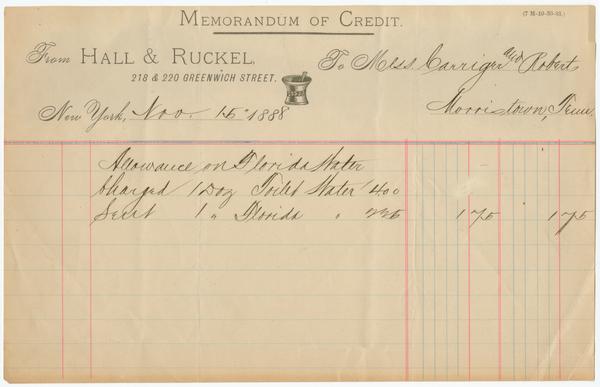 MEMORANDUM OF CREDIT.
(7 M-10-30-85.)
From HALL & RUCKEL,
218 & 220 GREENWICH STREET.
To Mess Carriger and Robert
Morristown, Tenn.
New York, Nov. 15" 1888
Allowance on Florida Water
Charged 1 Doz Toilet Water 4.00
Sent 1 " Florida " 2 25 1 75 1 75